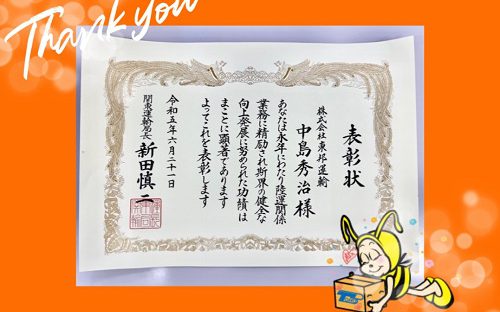 Thank you
表彰状
株式会社東邦運輸
中島秀治様
あなたは永年にわたり陸運関係
業務に精励され斯界の健全な
向上発展に努められた功績は
まことに顕著であります
よってこれを表彰します
令和五年六月二十一日
関東運輸局長 新田慎二